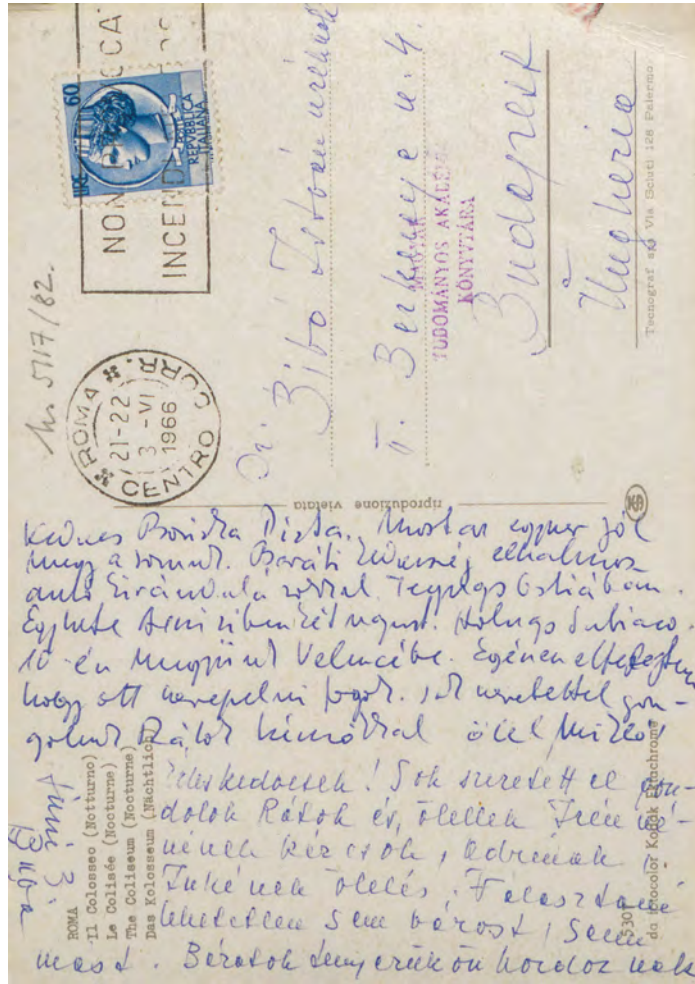 60
LIRE
REPVBBLICA
ITALIANA
NON
INCENDI
5717/82.
ROMA
CENTRO CORR.
21-22
3 -VI
1966
Dr. Bibó István úrnak
II. Berkenye u. 4.
MAGYAR
TUDOMÁNYOS AKADÉMIA
KÖNYVTÁRA
Budapest
Ungheria
Tecnograf spa Via Sciuti 128 Palermo
riproduzione vietata
Kedves Boriska Pista. Most az egyszer jól
megy a sorunk. Baráti
autó kirándulásokkal. Tegnap Ostiában.
Egy hete Holnap Subiaco.
10-én megyünk Velencébe. Egészen elfelejtem
hogy ott szerepelni fogok. Sok szeretettel gon-
golunk Rátok ölel Miklós
Édeskedvesek! Sok szeretettel gon-
dolok Rátok és, ölellek Irén né-
nének kézcsók,
ölelés.
lehetetlen sem várost, sem
mást. Barátok tenyerükön hordoznak
Juni 3.
ROMA
Il Colosseo (Notturno)
Le Colisée (Nocturne)
The Coliseum (Nocturne)
Das Kolosseum (Nächtlich)
da fotocolor Kodak Ektachrome